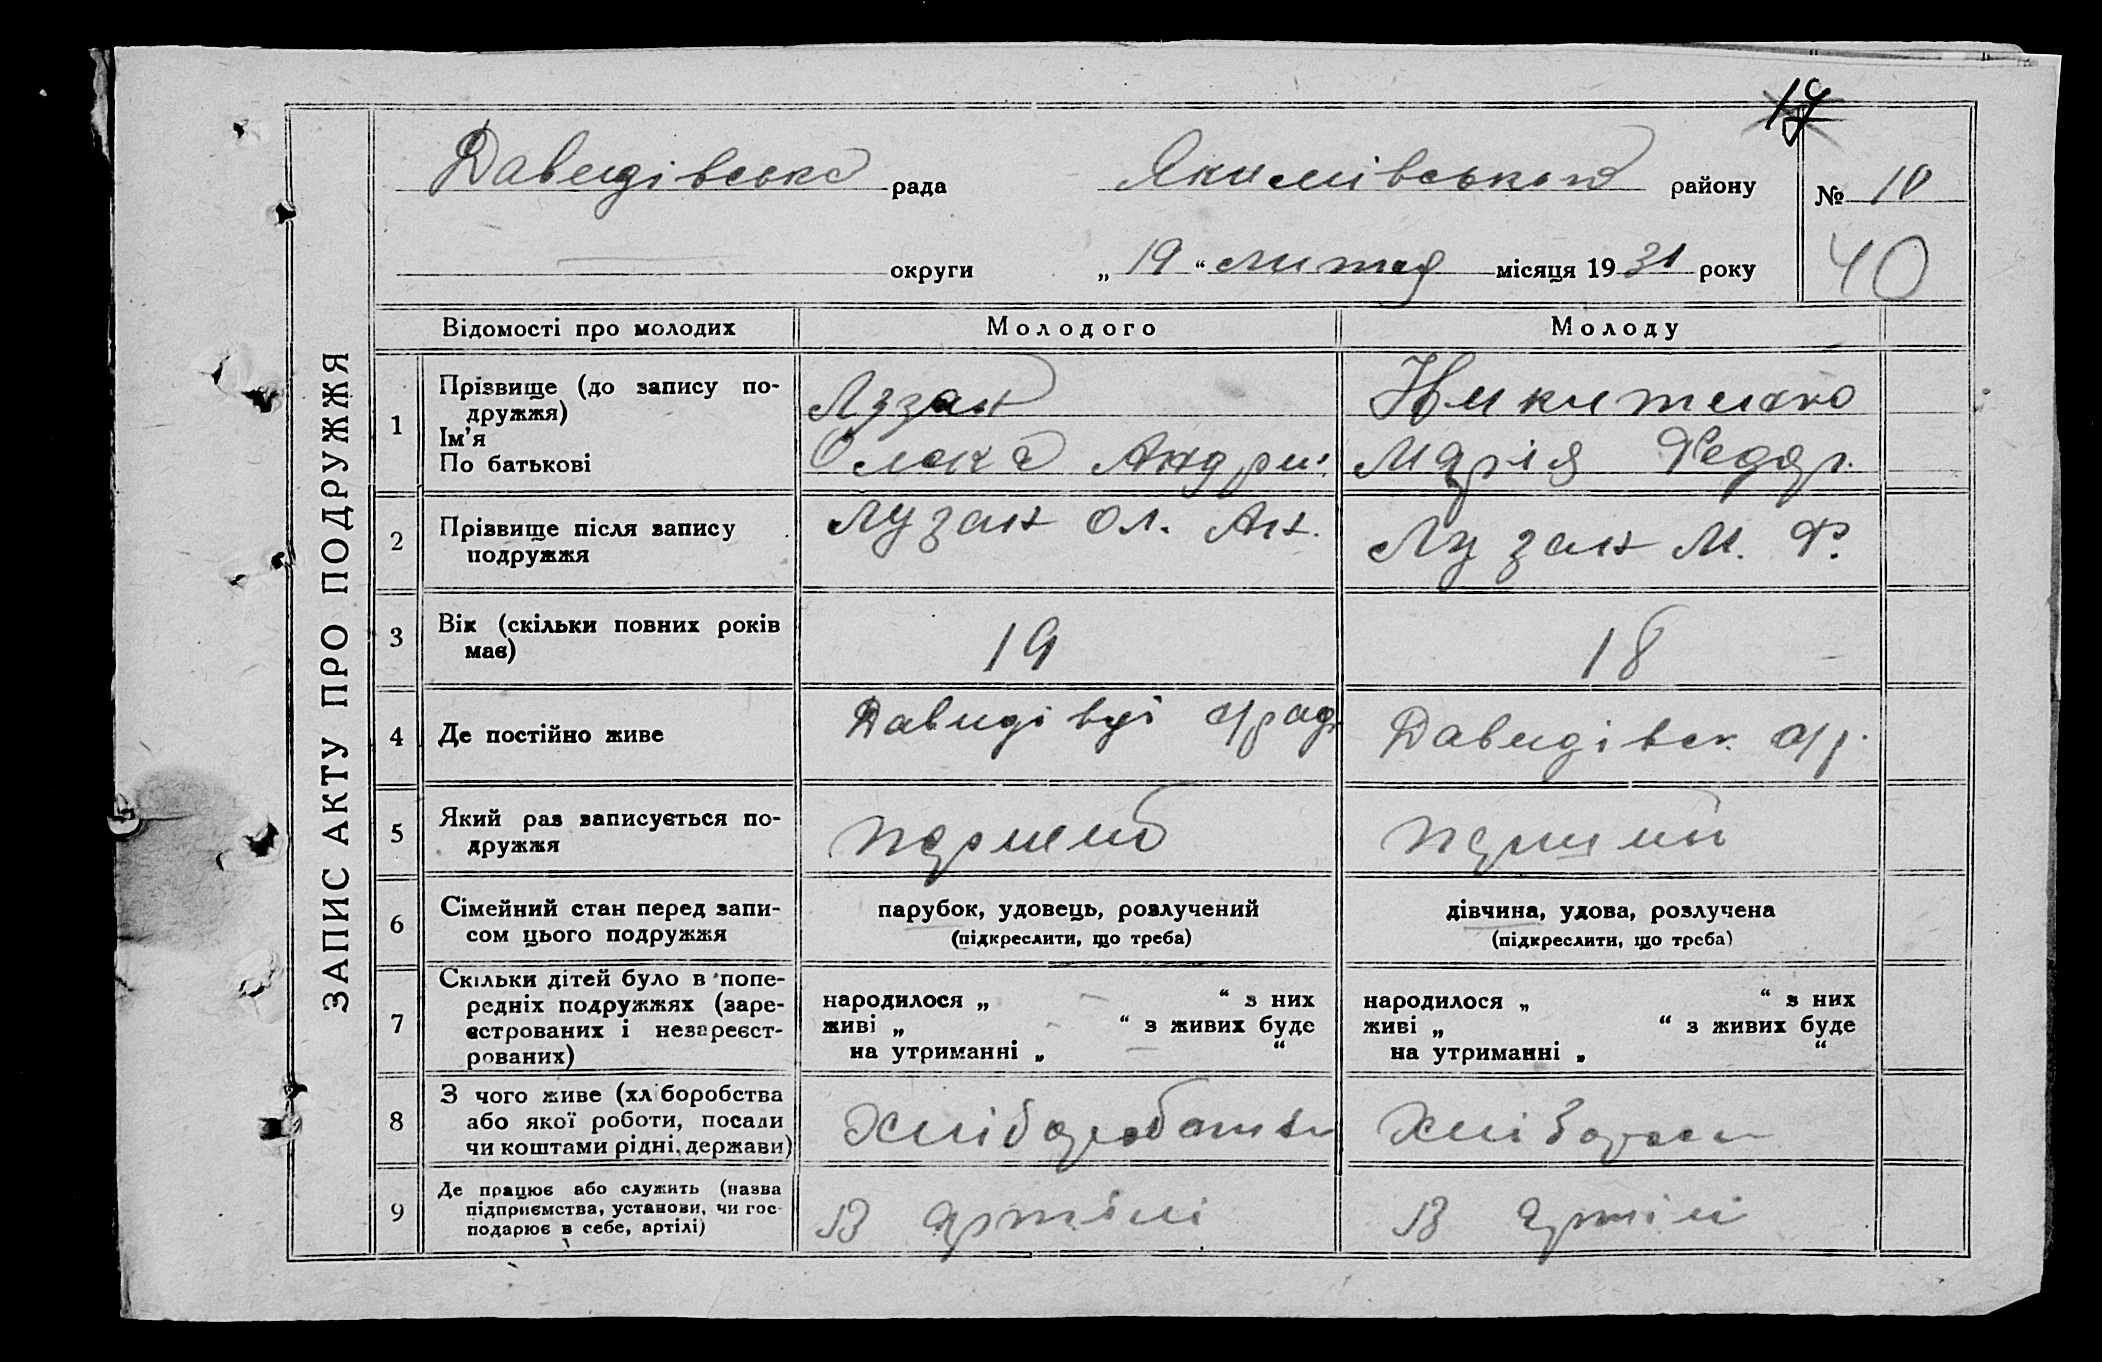 ЗАПИС АКТУ ПРО ПОДРУЖЖЯ
17
Давидівська рада Якимівського району № 10
округи „ 19 “ лютая місяця 1931 року 40
Відомості про молодих Молодого Молоду
1 Прізвище (до запису по-
дружжя)
Ім'я
По батькові
Лузан
Олекса Андри.
Никитенко
Марія Федор.
2 Прізвище після запису
подружжя
Лузан Ол. Ан.
Лузан М. Ф.
3 Вік (скільки повних років
має)
19
18
4 Де постійно живе
Давидівці с/рад.
Давидівск. с/р.
5 Який раз записується по-
дружжя
перший
перший
6 Сімейний стан перед запи-
сом цього подружжя
парубок, удовець, розлучений
(підкреслити, що треба)
дівчина, удова, розлучена
(підкреслити, що треба)
7 Скільки дітей було в попе-
редніх подружжях (заре-
єстрованих і незареєст-
рованих)
народилося „ — “ з них
живі „ - “ з живих буде
на утриманні „ — “
народилося „ “ з них
живі „ “ з живих буде
на утриманні „ “
8 З чого живе (хліборобства
або якої роботи, посади
чи коштами рідні, держави)
Хліборобать
9 Де працює або служить (назва
підприємства, установи, чи гос-
подарює в себе, артілі)
В артілі
В артілі